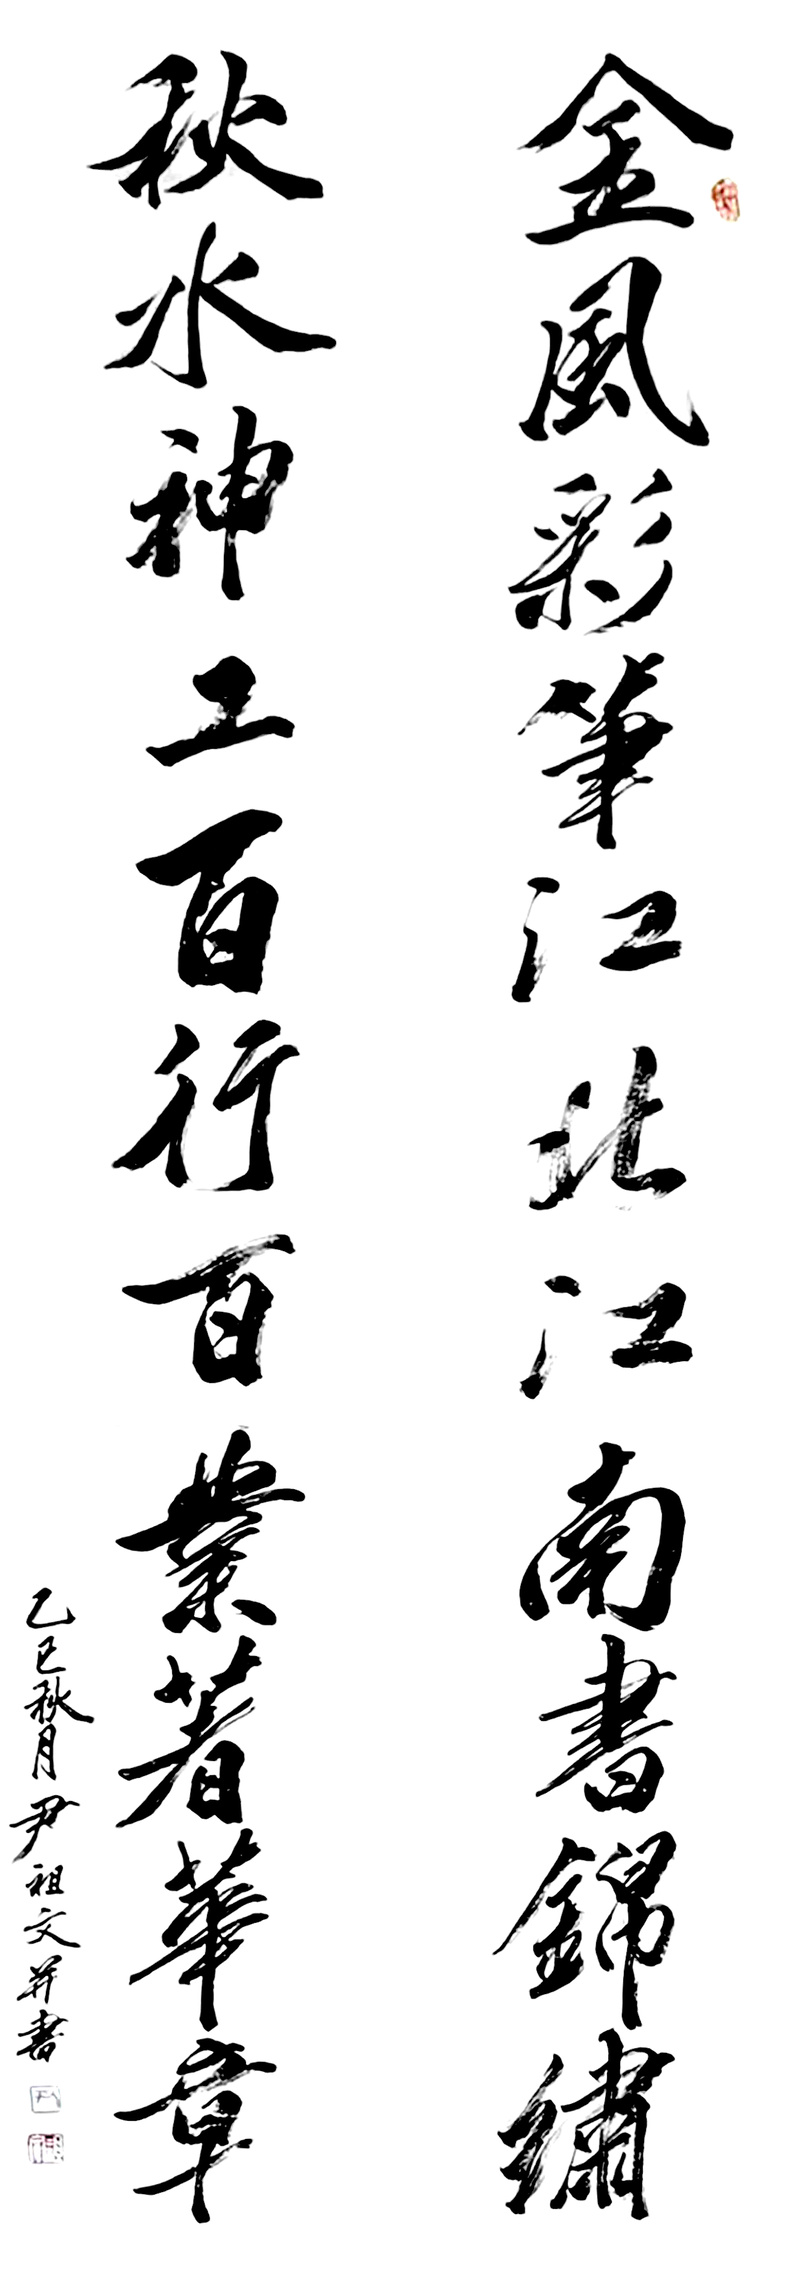 金風彩筆江北江南書錦繡
秋水神工百行百業著華章
乙巳秋月尹祖文并書